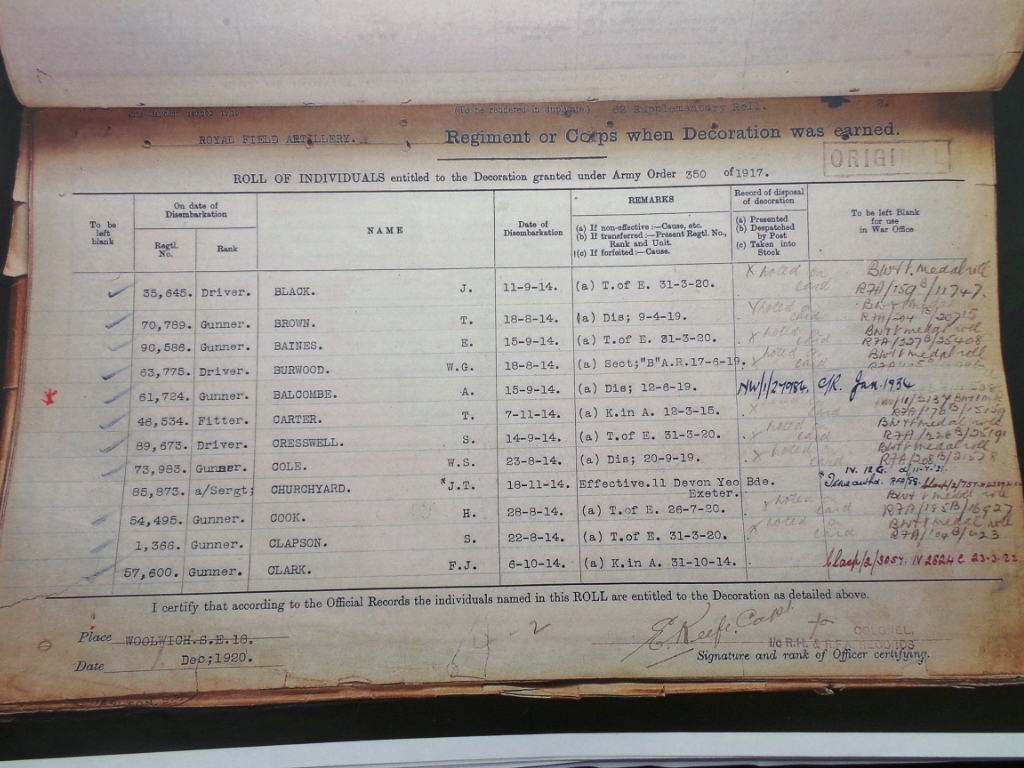 (To be rendered in duplicate.) 62 Supplementary Roll. 3.
ROYAL FIELD ARTILLERY. Regiment or Corps when Decoration was earned.
ORIGI L
ROLL OF INDIVIDUALS entitled to the Decoration granted under Army Order 350 of 1917.
To be left blank
On date of Disembarkation
Regtl. No.
Rank
NAME
Date of Disembarkation
REMARKS
(a) If non-effective :—Cause, etc.
(b) If transferred :—Present Regtl. No., Rank and Unit.
†(c) If forfeited :—Cause.
Record of disposal of decoration
(a) Presented
(b) Despatched by Post
(c) Taken into Stock
To be left Blank for use in War Office
35,645. Driver. BLACK. J. 11-9-14. (a) T.of E. 31-3-20. X noted on card BW+V. medal roll RFA/159B/11747.
70,789. Gunner. BROWN. T. 18-8-14. (a) Dis; 9-4-19. X noted on card
90,586. Gunner. BAINES. E. 15-9-14. (a) T.of E. 31-3-20. X noted on card BW+V medal roll RFA/227B/25408
63,775. Driver. BURWOOD. W.G. 18-8-14. (a) Sect;"B"A.R.17-6-19. X noted on card BW+V medal roll
61,724. Gunner. BALCOMBE. A. 15-9-14. (a) Dis; 12-6-19. NW/1/27984. C/R. Jan. 1934
46,534. Fitter. CARTER. T. 7-11-14. (a) K.in A. 12-3-15. X card
89,673. Driver. CRESSWELL. S. 14-9-14. (a) T.of E. 31-3-20. X noted on card BW+V medal roll
73,983. Gunner. COLE. W.S. 23-8-14. (a) Dis; 20-9-19. X noted on card BW+V medal roll RFA/208B/21528
85,873. a/Sergt; CHURCHYARD. *J.T. 18-11-14. Effective.11 Devon Yeo Bde. Exeter.
54,495. Gunner. COOK. H. 28-8-14. (a) T.of E. 26-7-20. X noted on card BW+V medal roll RFA/185B/16927
1,366. Gunner. CLAPSON. S. 22-8-14. (a) T.of E. 31-3-20. X noted on card BW+V medal roll
57,600. Gunner. CLARK. F.J. 6-10-14. (a) K.in A. 31-10-14. Clasp/2/3057. IV 2624 C 23-3-22
I certify that according to the Official Records the individuals named in this ROLL are entitled to the Decoration as detailed above.
Place WOOLWICH.S.E.18.
Date Dec;1920.
E. Keefe. Capt. for COLONEL,
I/c R.H. & R.F.A. RECORDS
Signature and rank of Officer certifying.